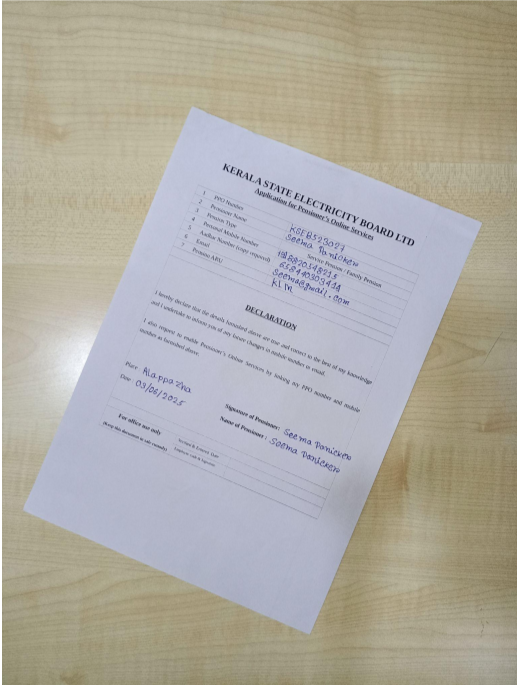 KERALA STATE ELECTRICITY BOARD LTD
Application for Pensioner's Online Services
1 PPO Number KSEB523027
2 Pensioner Name Seema Panicker
3 Pension Type Service Pension / Family Pension
4 Personal Mobile Number
5 Aadhar Number (copy required)
6 Email Seema@gmail.com
7 Pension ARU KLM
DECLARATION
I hereby declare that the details furnished above are true and correct to the best of my knowledge
and I undertake to inform you of any future changes in mobile number or email.
I also request to enable Pensioner's Online Services by linking my PPO number and mobile
number as furnished above.
Place : Alappazha
Date : 03/06/2025
Signature of Pensioner: Seema Panicker
Name of Pensioner : Seema Panicker
For office use only
(Keep this document in safe custody)
Received & Entered Date
Employee Code & Signature